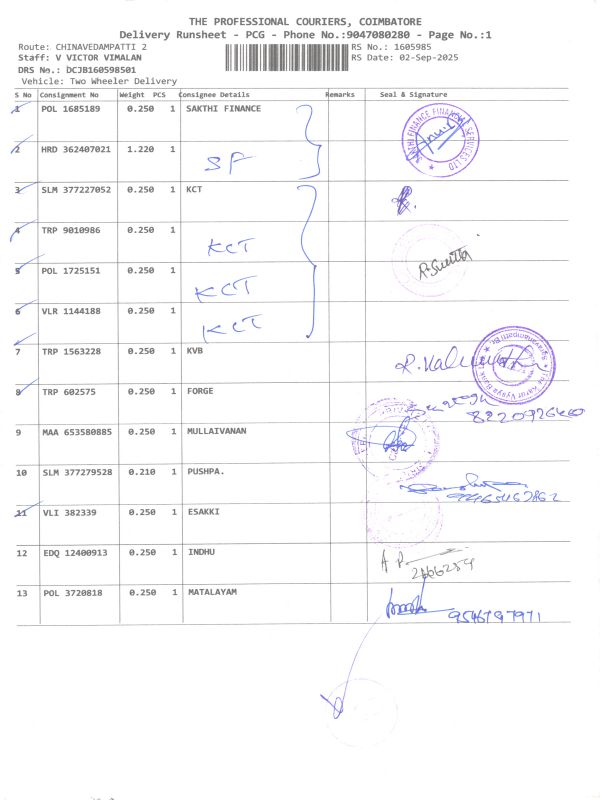 THE PROFESSIONAL COURIERS, COIMBATORE
Delivery Runsheet - PCG - Phone No.:9047080280 - Page No.:1
Route: CHINAVEDAMPATTI 2
RS No.: 1605985
Staff: V VICTOR VIMALAN
RS Date: 02-Sep-2025
DRS No.: DCJB160598501
Vehicle: Two Wheeler Delivery
S No Consignment No Weight PCS Consignee Details Remarks Seal & Signature
1 POL 1685189 0.250 1 SAKTHI FINANCE
2 HRD 362407021 1.220 1 SF
3 SLM 377227052 0.250 1 KCT
4 TRP 9010986 0.250 1 KCT
5 POL 1725151 0.250 1 KCT
6 VLR 1144188 0.250 1 KCT
7 TRP 1563228 0.250 1 KVB
8 TRP 602575 0.250 1 FORGE
8220926400
9 MAA 653580885 0.250 1 MULLAIVANAN
10 SLM 377279528 0.210 1 PUSHPA.
11 VLI 382339 0.250 1 ESAKKI
12 EDQ 12400913 0.250 1 INDHU
13 POL 3720818 0.250 1 MATALAYAM